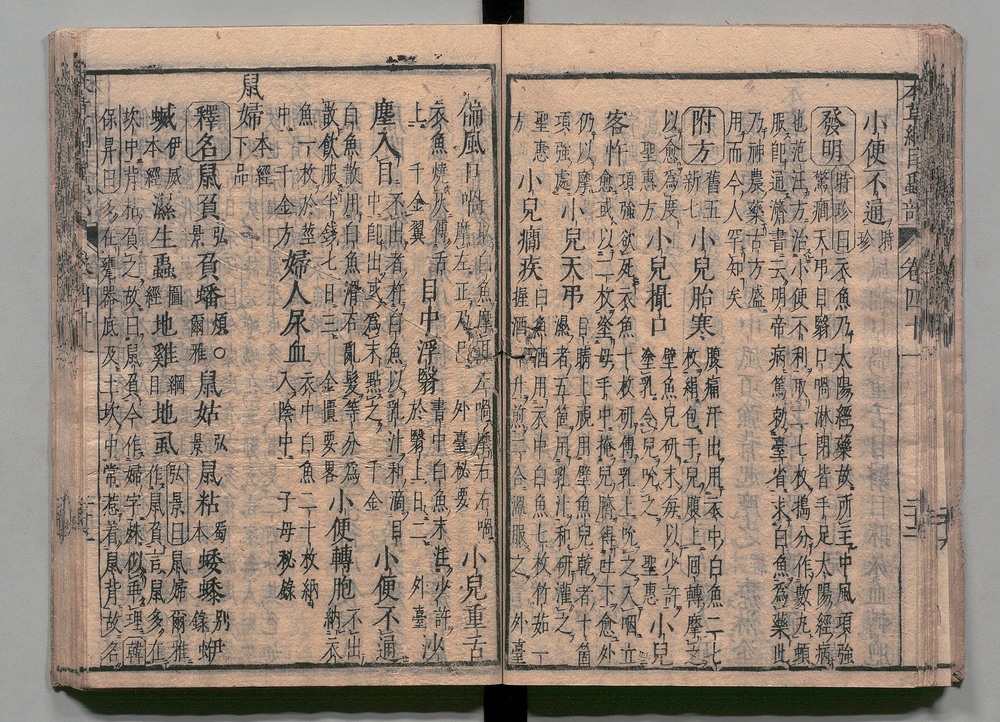 本草綱目蟲部 卷四十一
小便不通 時珍
發明 時珍曰衣魚乃太陽經藥故所主中風項強
驚癇天弔目翳口喎淋閉皆手足太陽經病
也范汪方治小便不利取二七枚搗分作數丸頓
服即通齊書云明帝病篤勑臺省求白魚爲藥此
乃神農藥古方盛
用而今人罕知矣
附方 舊五 小兒胎寒 腹痛汗出用衣中白魚二七
枚絹包于兒腹上回轉摩之
以愈爲度
聖惠方 小兒撮口 壁魚兒研末每以少許
塗乳令兒吮之 聖惠 小兒
客忤 項強欲死衣魚十枚研傅乳上吮之入咽立
愈或以二枚塗母手中掩兒臍得吐下愈外
仍以摩
項強處 小兒天弔 目睛上視用壁魚兒乾者十箇
濕者五箇用乳汁和研灌之
聖惠
方 小兒癇疾 白魚酒用衣中白魚七枚竹茹一
握酒一升煎二合溫服之 外臺
偏風口喎 取白魚摩耳下左喎摩右右喎
摩左正乃已 外臺秘要 小兒重舌
衣魚燒灰傅舌
上 千金翼 目中浮翳 書中白魚末注少許
於翳上日二 外臺 沙
塵入目 不出者杵白魚以乳汁和滴目
中即出或爲末點之 千金 小便不通
白魚散用白魚滑石亂髮等分爲
散飲服半錢匕日三 金匱要畧 小便轉胞 不出
納衣
魚一枚於莖
中 千金方 婦人尿血 衣中白魚二十枚納
入陰中 子母秘錄
鼠婦 本經
下品
釋名 鼠負 弘景 負蟠 煩 爾雅 ○鼠姑 弘景 鼠粘 蜀本 蜲䗔 別錄 蛜
蝛 本經 伊威 濕生蟲 圖經 地雞 綱目 地虱 弘景曰鼠婦爾雅
作鼠負言鼠多在
坎中背粘負之故曰鼠負今作婦字殊似乖理韓
保昇曰多在甕器底及土坎中常惹着鼠背故名